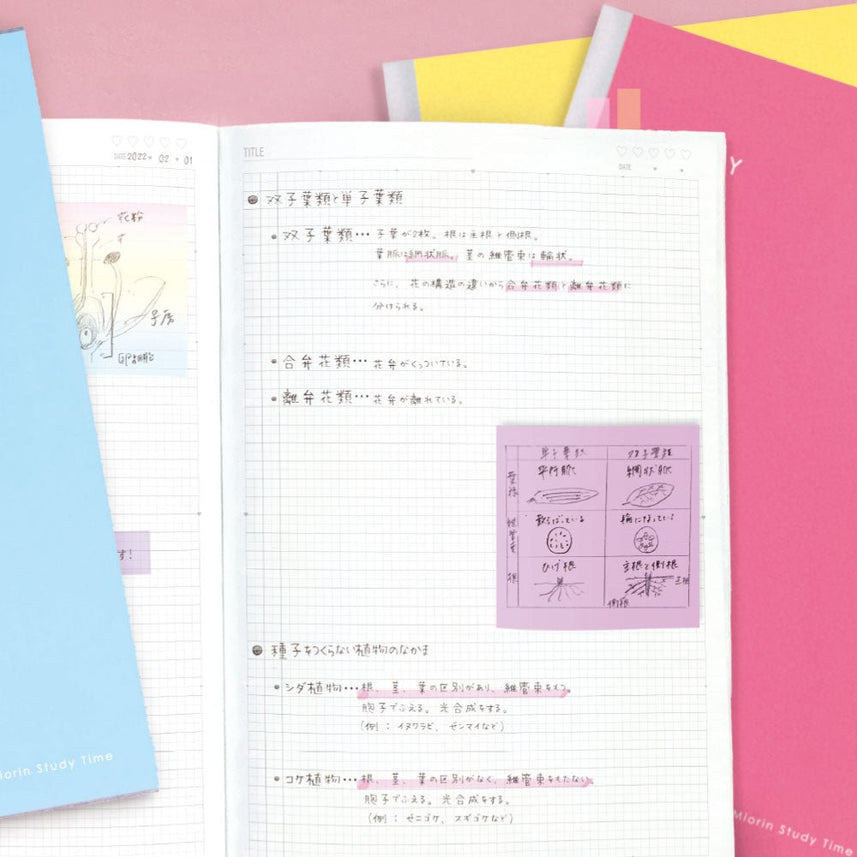 DATE 2022 02 01
花粉
子房
す!
TITLE
DATE
Y
双子葉類と単子葉類
双子葉類…子葉が2枚。根は主根と側根。
葉脈は網状脈。茎の維管束は輪状。
さらに、花の構造の違いから合弁花類と離弁花類に
分けられる。
合弁花類…花弁がくっついている。
離弁花類…花弁が離れている。
双子葉類
平行脈 網状脈
散らばっている 輪になっている
維管束
ひげ根 主根と側根
根
主根
側根
種子をつくらない植物のなかま
シダ植物…根、茎、葉の区別があり、維管束をもつ。
胞子でふえる。光合成をする。
(例:イヌワラビ、ゼンマイなど)
コケ植物…根、茎、葉の区別がなく、維管束をもたない。
胞子でふえる。光合成をする。
(例:ゼニゴケ、スギゴケなど)
Miorin Study Time
Miorin Study Time